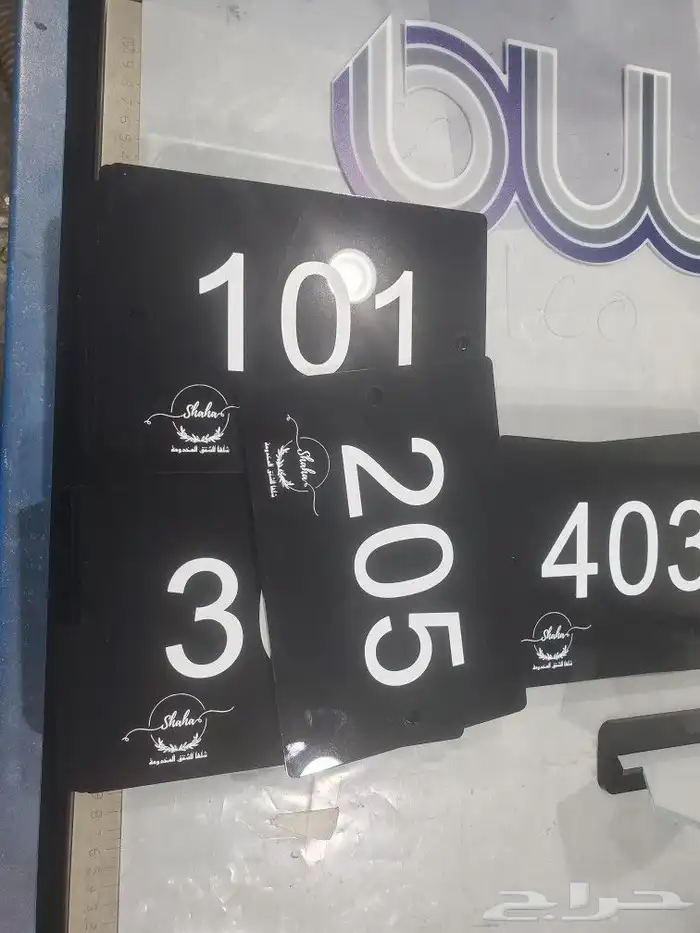 101
Shaha
شاها للشقق المخدومة
205
Shaha
شاها للشقق المخدومة
3
Shaha
شاها للشقق المخدومة
403
Shaha
شاها للشقق المخدومة
حراج